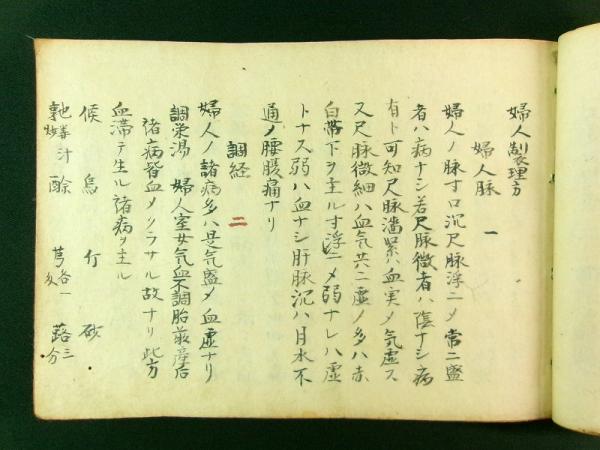 婦人製理方
婦人脉 一
婦人ノ脉寸口沉尺脉浮ニメ常ニ盛
者ハ病ナシ若尺脉微者ハ陰ナシ病
有ト可知尺脉濇緊ハ血実メ気虚ス
又尺脉微細ハ血気共ニ虚ノ多ハ赤
白帯下ヲ主ル寸浮ニメ弱ナレハ虚
トナス弱ハ血ナシ肝脉沉ハ月水不
通ノ腰腹痛ナリ
調経 二
婦人ノ諸病多ハ是気盛メ血虚ナリ
調栄湯 婦人室女気血不調胎前産后
諸病皆血メクラサル故ナリ此方
血滞テ生ル諸病ヲ主ル
候 烏 付 砂
汁 酴 芎各一 蕗三分